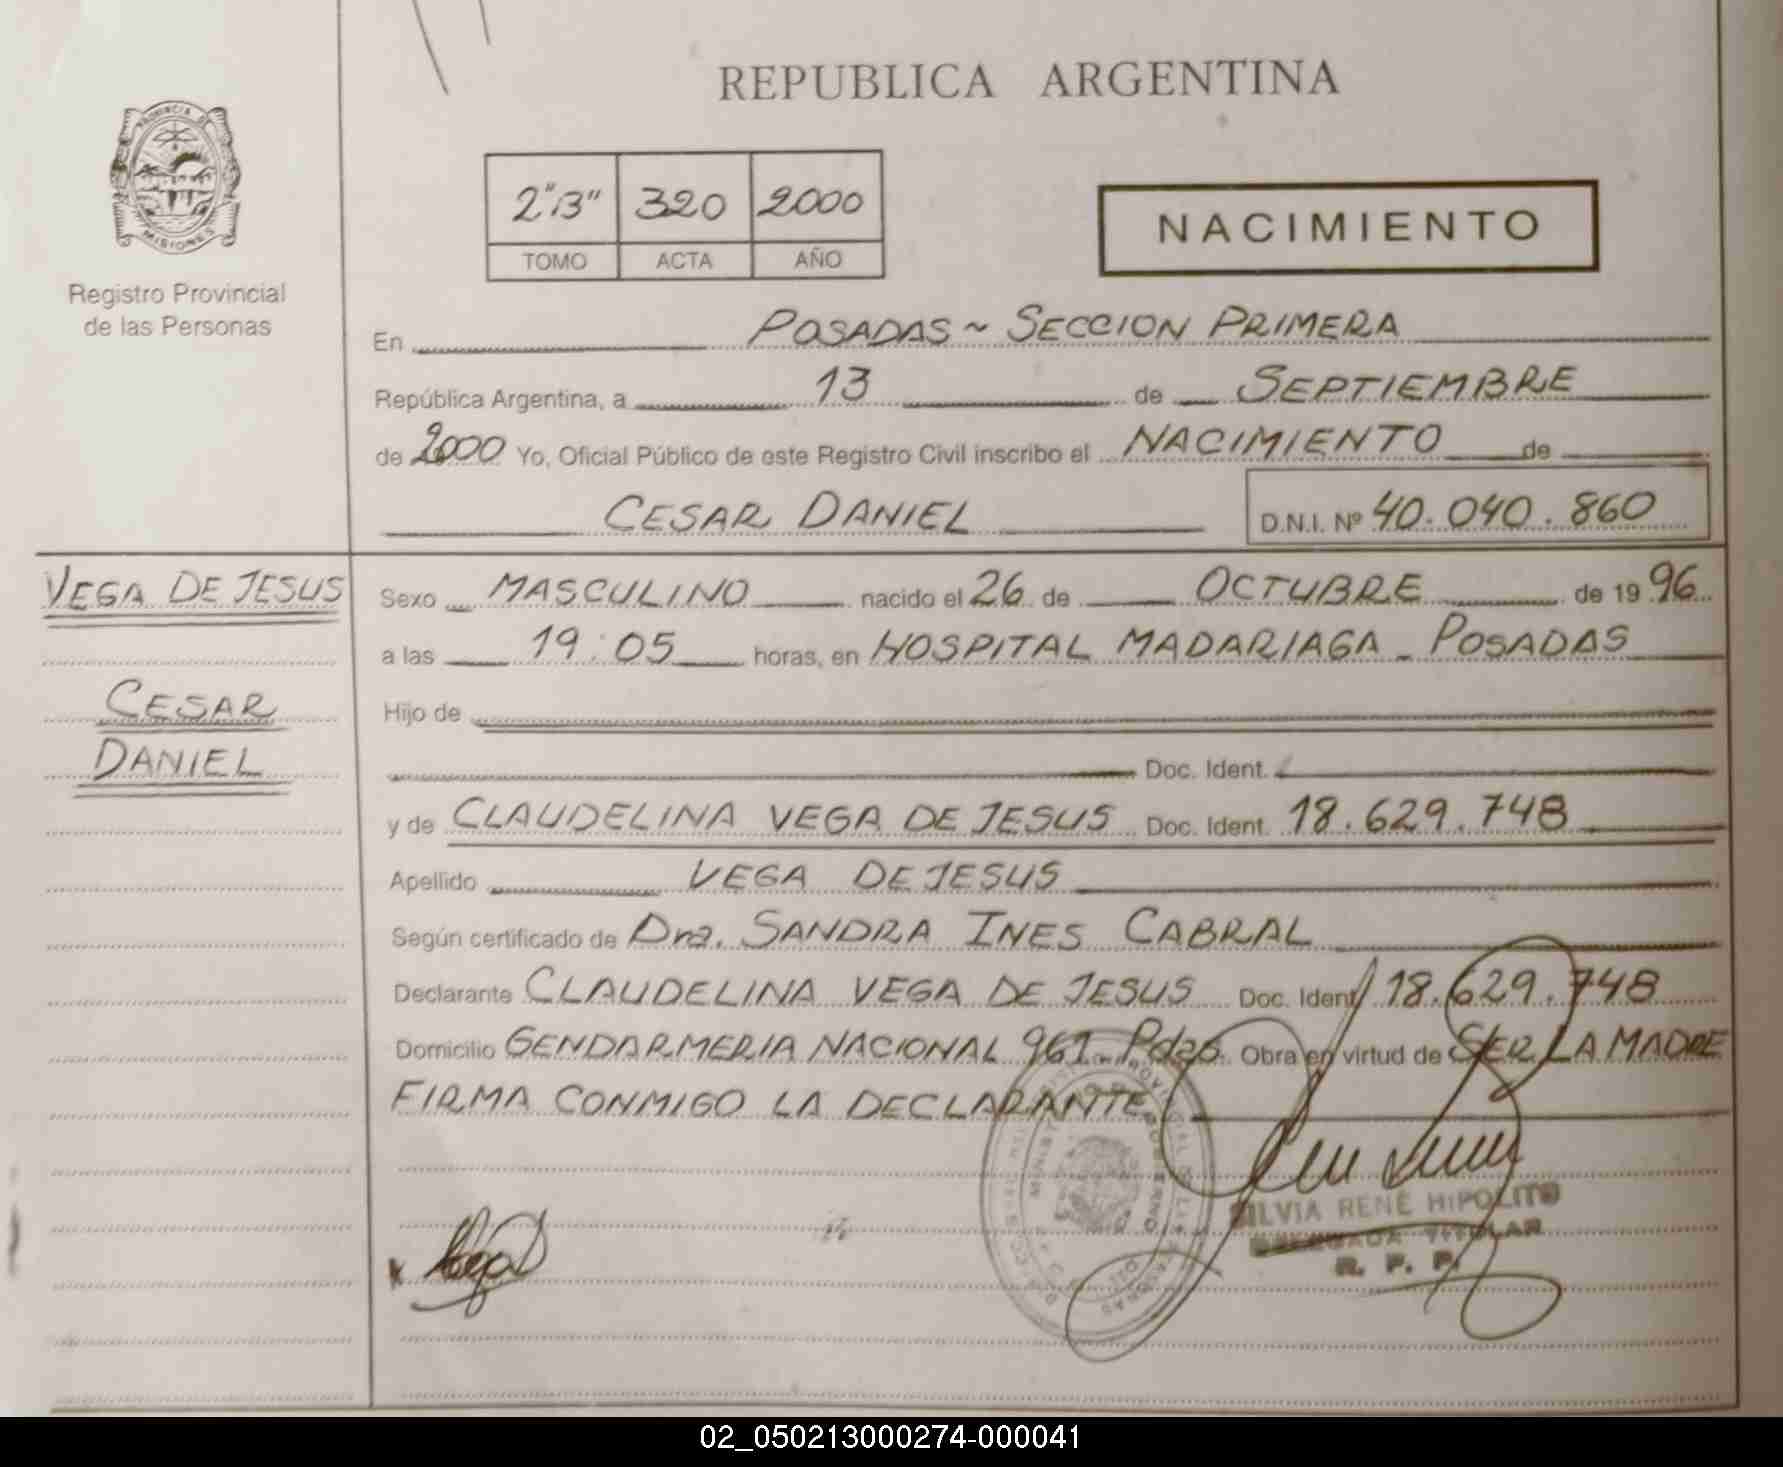 REPUBLICA ARGENTINA
PROVINCIA DE
MISIONES
Registro Provincial
de las Personas
2"B" 320 2000
TOMO ACTA AÑO
NACIMIENTO
En POSADAS ~ SECCION PRIMERA
República Argentina, a 13 de SEPTIEMBRE
de 2000 Yo, Oficial Público de este Registro Civil inscribo el NACIMIENTO de
CESAR DANIEL D.N.I. Nº 40.040.860
VEGA DE JESUS
CESAR
DANIEL
Sexo MASCULINO nacido el 26 de OCTUBRE de 1996
a las 19:05 horas, en HOSPITAL MADARIAGA - POSADAS
Hijo de
Doc. Ident.
y de CLAUDELINA VEGA DE JESUS Doc. Ident. 18.629.748
Apellido VEGA DE JESUS
Según certificado de Dra. SANDRA INES CABRAL
Declarante CLAUDELINA VEGA DE JESUS Doc. Ident 18.629.748
Domicilio GENDARMERIA NACIONAL 961 - Pdas. Obra en virtud de SER LA MADRE
FIRMA CONMIGO LA DECLARANTE
SILVIA RENE HIPOLITO
DELEGADA TITULAR
R. P. P.
02_050213000274-000041